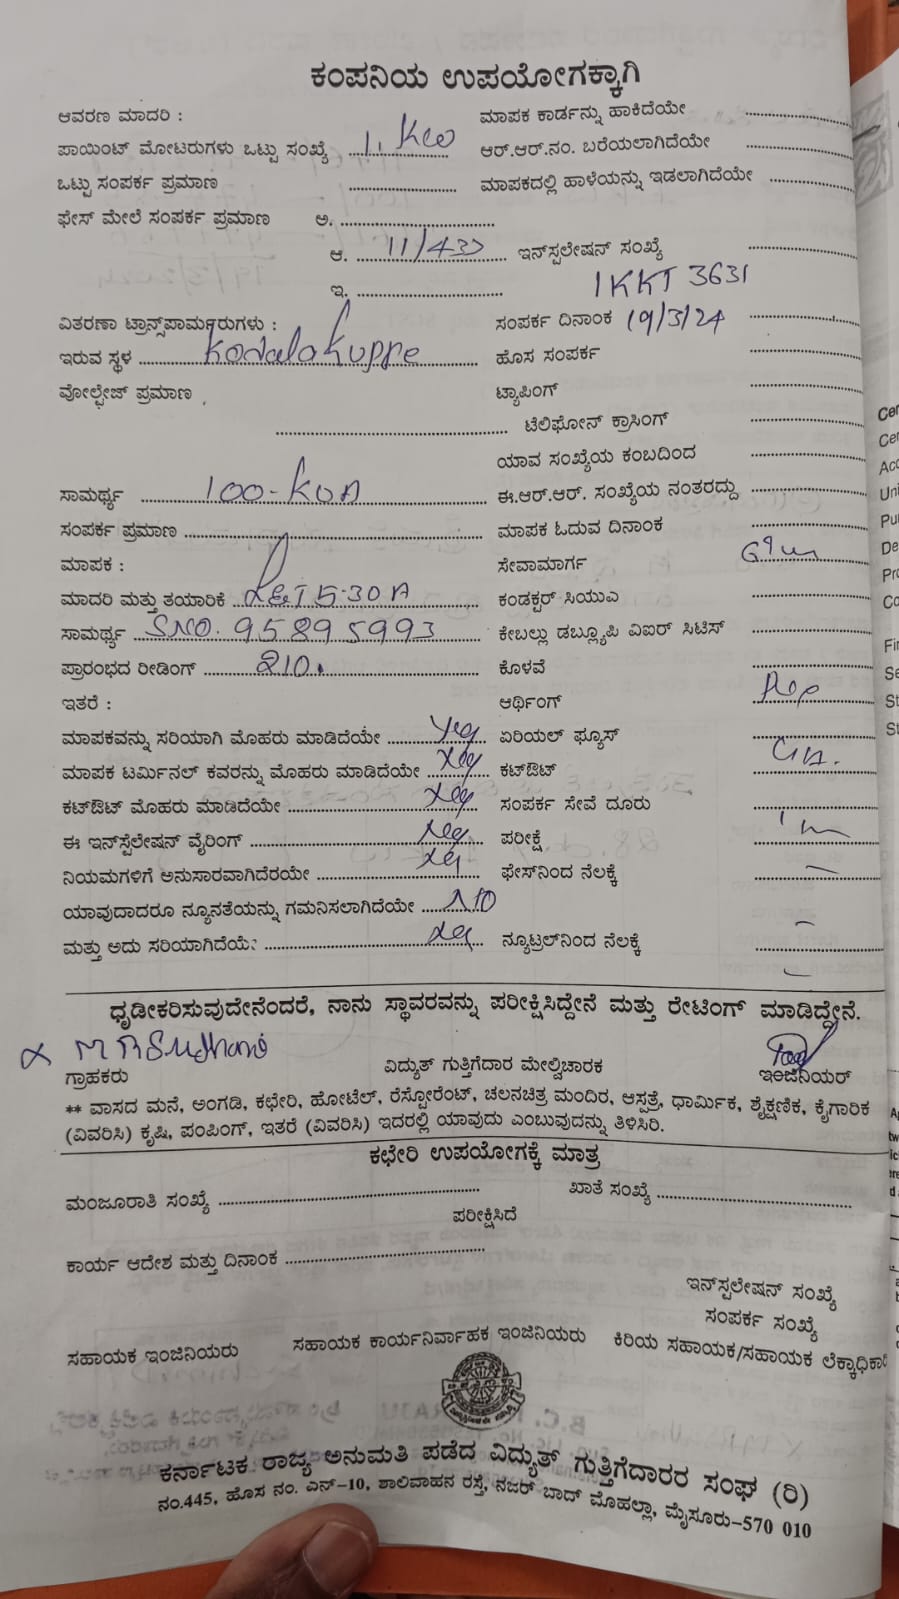 ಕಂಪನಿಯ ಉಪಯೋಗಕ್ಕಾಗಿ
ಆವರಣ ಮಾದರಿ : ಮಾಪಕ ಕಾರ್ಡನ್ನು ಹಾಕಿದೆಯೇ
ಪಾಯಿಂಟ್ ಮೋಟರುಗಳು ಒಟ್ಟು ಸಂಖ್ಯೆ 1. Kw ಆರ್.ಆರ್.ನಂ. ಬರೆಯಲಾಗಿದೆಯೇ
ಒಟ್ಟು ಸಂಪರ್ಕ ಪ್ರಮಾಣ ಮಾಪಕದಲ್ಲಿ ಹಾಳೆಯನ್ನು ಇಡಲಾಗಿದೆಯೇ
ಫೇಸ್ ಮೇಲೆ ಸಂಪರ್ಕ ಪ್ರಮಾಣ ಅ.
ಆ. 11/433 ಇನ್‌ಸ್ಪಲೇಷನ್ ಸಂಖ್ಯೆ
ಇ. 1KKT 3631
ವಿತರಣಾ ಟ್ರಾನ್ಸ್‌ಪಾರ್ಮರುಗಳು : ಸಂಪರ್ಕ ದಿನಾಂಕ 19/3/24
ಇರುವ ಸ್ಥಳ Kodalakuppe ಹೊಸ ಸಂಪರ್ಕ
ವೋಲ್ಟೇಜ್ ಪ್ರಮಾಣ ಟ್ಯಾಪಿಂಗ್
ಟೆಲಿಫೋನ್ ಕ್ರಾಸಿಂಗ್
ಯಾವ ಸಂಖ್ಯೆಯ ಕಂಬದಿಂದ
ಸಾಮರ್ಥ್ಯ 100-KVA ಈ.ಆರ್.ಆರ್. ಸಂಖ್ಯೆಯ ನಂತರದ್ದು
ಸಂಪರ್ಕ ಪ್ರಮಾಣ ಮಾಪಕ ಓದುವ ದಿನಾಂಕ
ಮಾಪಕ : ಸೇವಾಮಾರ್ಗ
ಮಾದರಿ ಮತ್ತು ತಯಾರಿಕೆ L&T 5-30A ಕಂಡಕ್ಟರ್ ಸಿಯುಎ
ಸಾಮರ್ಥ್ಯ SNO. 95895993 ಕೇಬಲ್ಲು ಡಬ್ಲ್ಯೂಪಿ ವಿಐರ್ ಸಿಟಿಸ್
ಪ್ರಾರಂಭದ ರೀಡಿಂಗ್ 210. ಕೊಳವೆ
ಇತರೆ : ಆರ್ಥಿಂಗ್ Pipe
ಮಾಪಕವನ್ನು ಸರಿಯಾಗಿ ಮೊಹರು ಮಾಡಿದೆಯೇ yes ಏರಿಯಲ್ ಫ್ಯೂಸ್
ಮಾಪಕ ಟರ್ಮಿನಲ್ ಕವರನ್ನು ಮೊಹರು ಮಾಡಿದೆಯೇ yes ಕಟ್‌ಔಟ್
ಕಟ್‌ಔಟ್ ಮೊಹರು ಮಾಡಿದೆಯೇ yes ಸಂಪರ್ಕ ಸೇವೆ ದೂರು
ಈ ಇನ್‌ಸ್ಪೆಲೇಷನ್ ವೈರಿಂಗ್ yes ಪರೀಕ್ಷೆ
ನಿಯಮಗಳಿಗೆ ಅನುಸಾರವಾಗಿದೆರಯೇ yes ಫೇಸ್‌ನಿಂದ ನೆಲಕ್ಕೆ
ಯಾವುದಾದರೂ ನ್ಯೂನತೆಯನ್ನು ಗಮನಿಸಲಾಗಿದೆಯೇ NO
ಮತ್ತು ಅದು ಸರಿಯಾಗಿದೆಯೆ: yes ನ್ಯೂಟ್ರಲ್‌ನಿಂದ ನೆಲಕ್ಕೆ
ಧೃಡೀಕರಿಸುವುದೇನೆಂದರೆ, ನಾನು ಸ್ಥಾವರವನ್ನು ಪರೀಕ್ಷಿಸಿದ್ದೇನೆ ಮತ್ತು ರೇಟಿಂಗ್ ಮಾಡಿದ್ದೇನೆ.
ಗ್ರಾಹಕರು ವಿದ್ಯುತ್ ಗುತ್ತಿಗೆದಾರ ಮೇಲ್ವಿಚಾರಕ ಇಂಜಿನಿಯರ್
** ವಾಸದ ಮನೆ, ಅಂಗಡಿ, ಕಛೇರಿ, ಹೋಟೆಲ್, ರೆಸ್ಟೋರೆಂಟ್, ಚಲನಚಿತ್ರ ಮಂದಿರ, ಆಸ್ಪತ್ರೆ, ಧಾರ್ಮಿಕ, ಶೈಕ್ಷಣಿಕ, ಕೈಗಾರಿಕ
(ವಿವರಿಸಿ) ಕೃಷಿ, ಪಂಪಿಂಗ್, ಇತರೆ (ವಿವರಿಸಿ) ಇದರಲ್ಲಿ ಯಾವುದು ಎಂಬುವುದನ್ನು ತಿಳಿಸಿರಿ.
ಕಛೇರಿ ಉಪಯೋಗಕ್ಕೆ ಮಾತ್ರ
ಮಂಜೂರಾತಿ ಸಂಖ್ಯೆ ಖಾತೆ ಸಂಖ್ಯೆ
ಪರೀಕ್ಷಿಸಿದೆ
ಕಾರ್ಯ ಆದೇಶ ಮತ್ತು ದಿನಾಂಕ
ಇನ್‌ಸ್ಪಲೇಷನ್ ಸಂಖ್ಯೆ
ಸಂಪರ್ಕ ಸಂಖ್ಯೆ
ಸಹಾಯಕ ಇಂಜಿನಿಯರು ಸಹಾಯಕ ಕಾರ್ಯನಿರ್ವಾಹಕ ಇಂಜಿನಿಯರು ಕಿರಿಯ ಸಹಾಯಕ/ಸಹಾಯಕ ಲೆಕ್ಕಾಧಿಕಾರಿ
ಕರ್ನಾಟಕ ರಾಜ್ಯ ಅನುಮತಿ ಪಡೆದ ವಿದ್ಯುತ್ ಗುತ್ತಿಗೆದಾರರ ಸಂಘ (ರಿ)
ನಂ.445, ಹೊಸ ನಂ. ಎನ್-10, ಶಾಲಿವಾಹನ ರಸ್ತೆ, ನಜರ್ ಬಾದ್ ಮೊಹಲ್ಲಾ, ಮೈಸೂರು-570 010